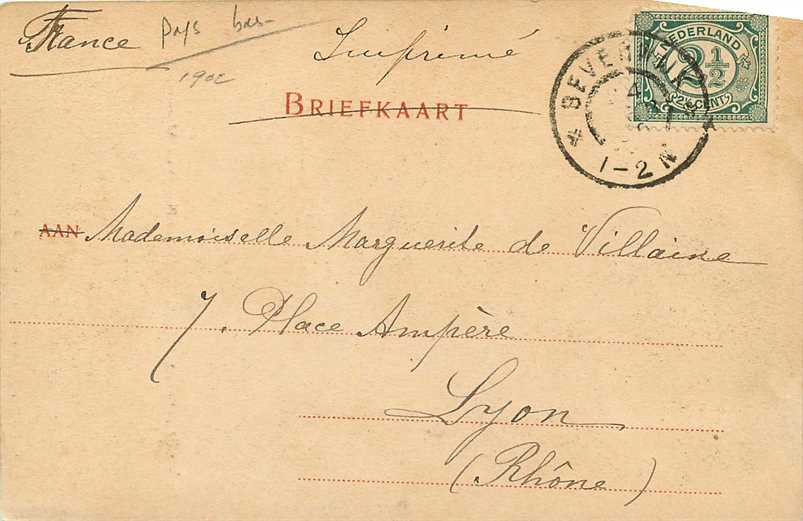 France Pays bas
1902
Imprimé
BRIEFKAART
NEDERLAND
2½
(2½ CENT)
BEVERWIJK
4
1-2 N
AAN Mademoiselle Marguerite de Villaine
7. Place Ampère
Lyon
(Rhône)